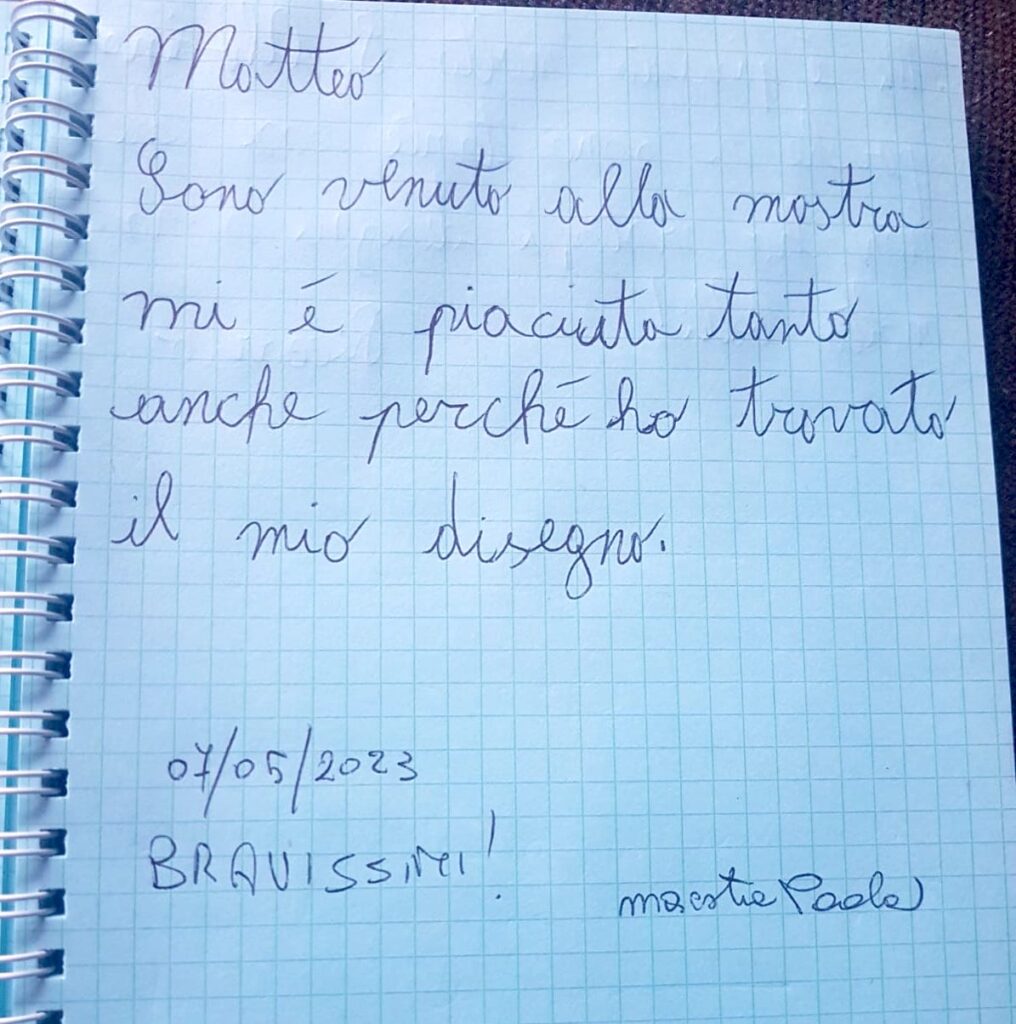 Matteo
Sono venuto alla mostra
mi é piaciuta tanto
anche perché ho trovato
il mio disegno.
07/05/2023
BRAVISSIMI!
maestra Paola